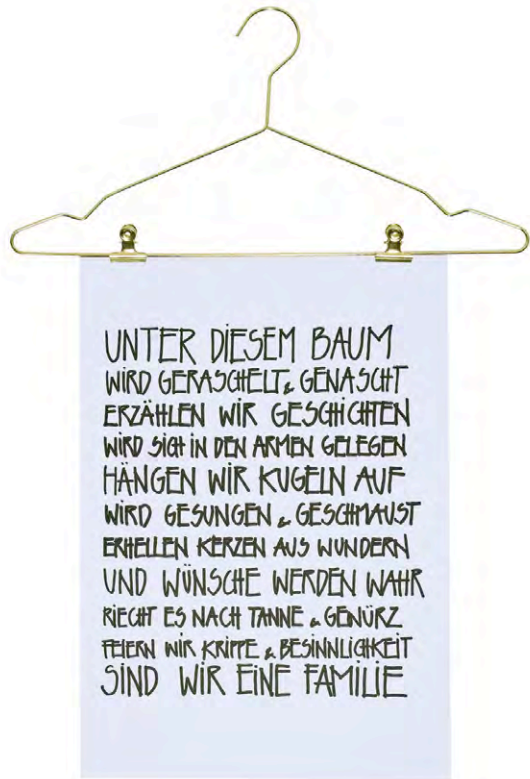 UNTER DIESEM BAUM
WIRD GERASCHELT & GENASCHT
ERZÄHLEN WIR GESCHICHTEN
WIRD SICH IN DEN ARMEN GELEGEN
HÄNGEN WIR KUGELN AUF
WIRD GESUNGEN & GESCHMAUST
ERHELLEN KERZEN AUS WUNDERN
UND WÜNSCHE WERDEN WAHR
RIECHT ES NACH TANNE & GEWÜRZ
FEIERN WIR KRIPPE & BESINNLICHKEIT
SIND WIR EINE FAMILIE